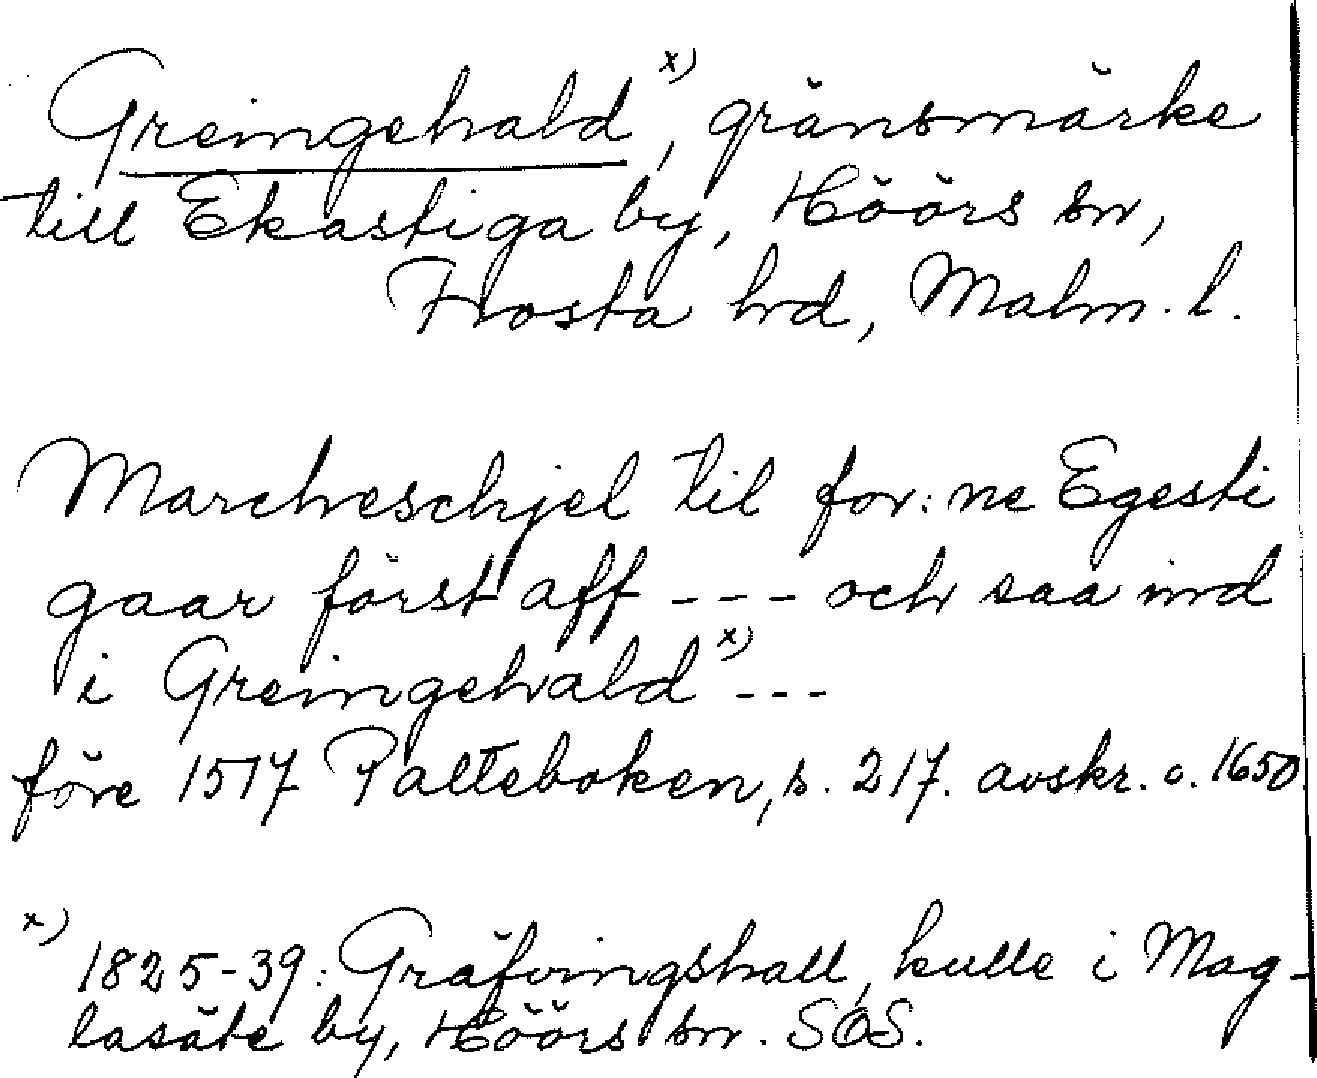 Greingehald x), gränsmärke
till Ekastiga by, Höörs sn,
Frosta hd, Malm. l.
Marcheschjel til for:ne Egesti
gaar först aff --- och saa ind
i Greingehald x) ---
före 1517 Palteboken, s. 217. avskr. c. 1650.
x) 1825-39: Gräfvingshall, kulle i Mag-
lasäte by, Höörs sn. SOS.